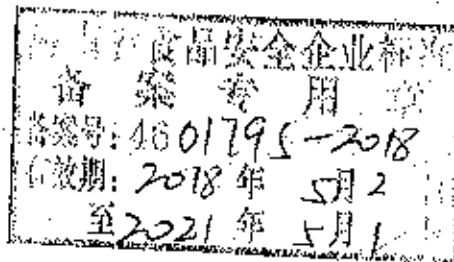 食品安全企业标
备案专用章
备案号:4601795-2018
有效期:2018年5月2
至2021年5月1